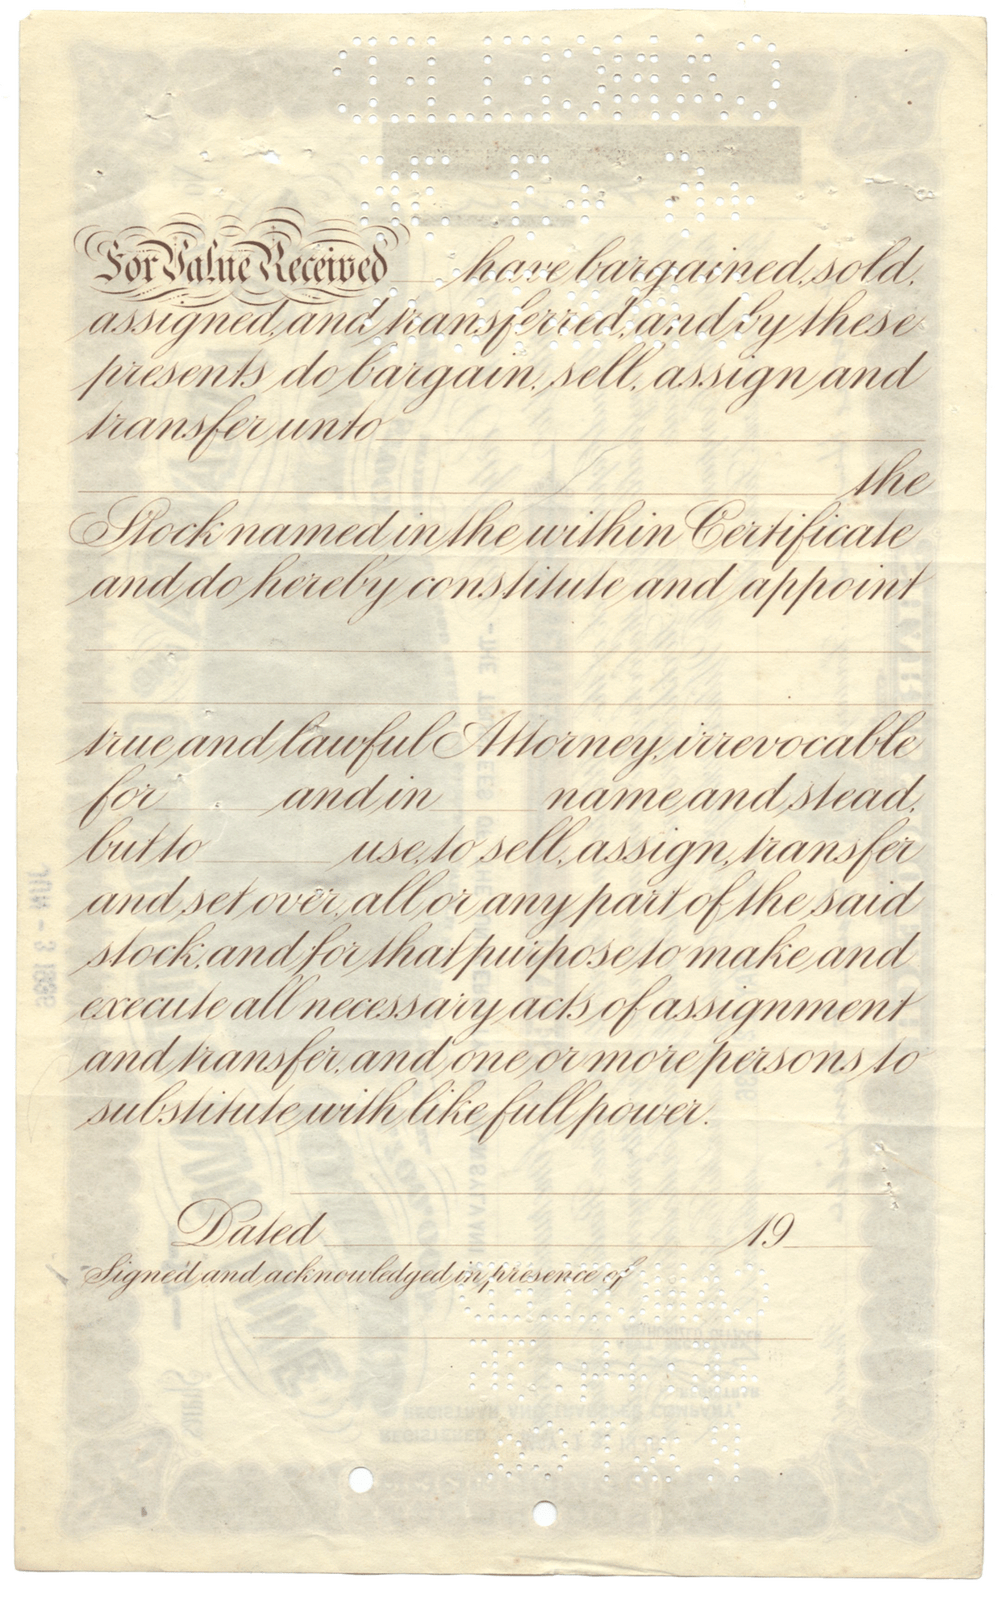 For Value Received have bargained, sold,
assigned, and transferred, and by these
presents do bargain, sell, assign and
transfer unto
the
Stock named in the within Certificate
and do hereby constitute and appoint
true and lawful Attorney, irrevocable
for and in name and stead,
but to use, to sell, assign, transfer
and set over, all or any part of the said
stock, and for that purpose to make and
execute all necessary acts of assignment
and transfer, and one or more persons to
substitute with like full power.
Dated 19
Signed and acknowledged in presence of